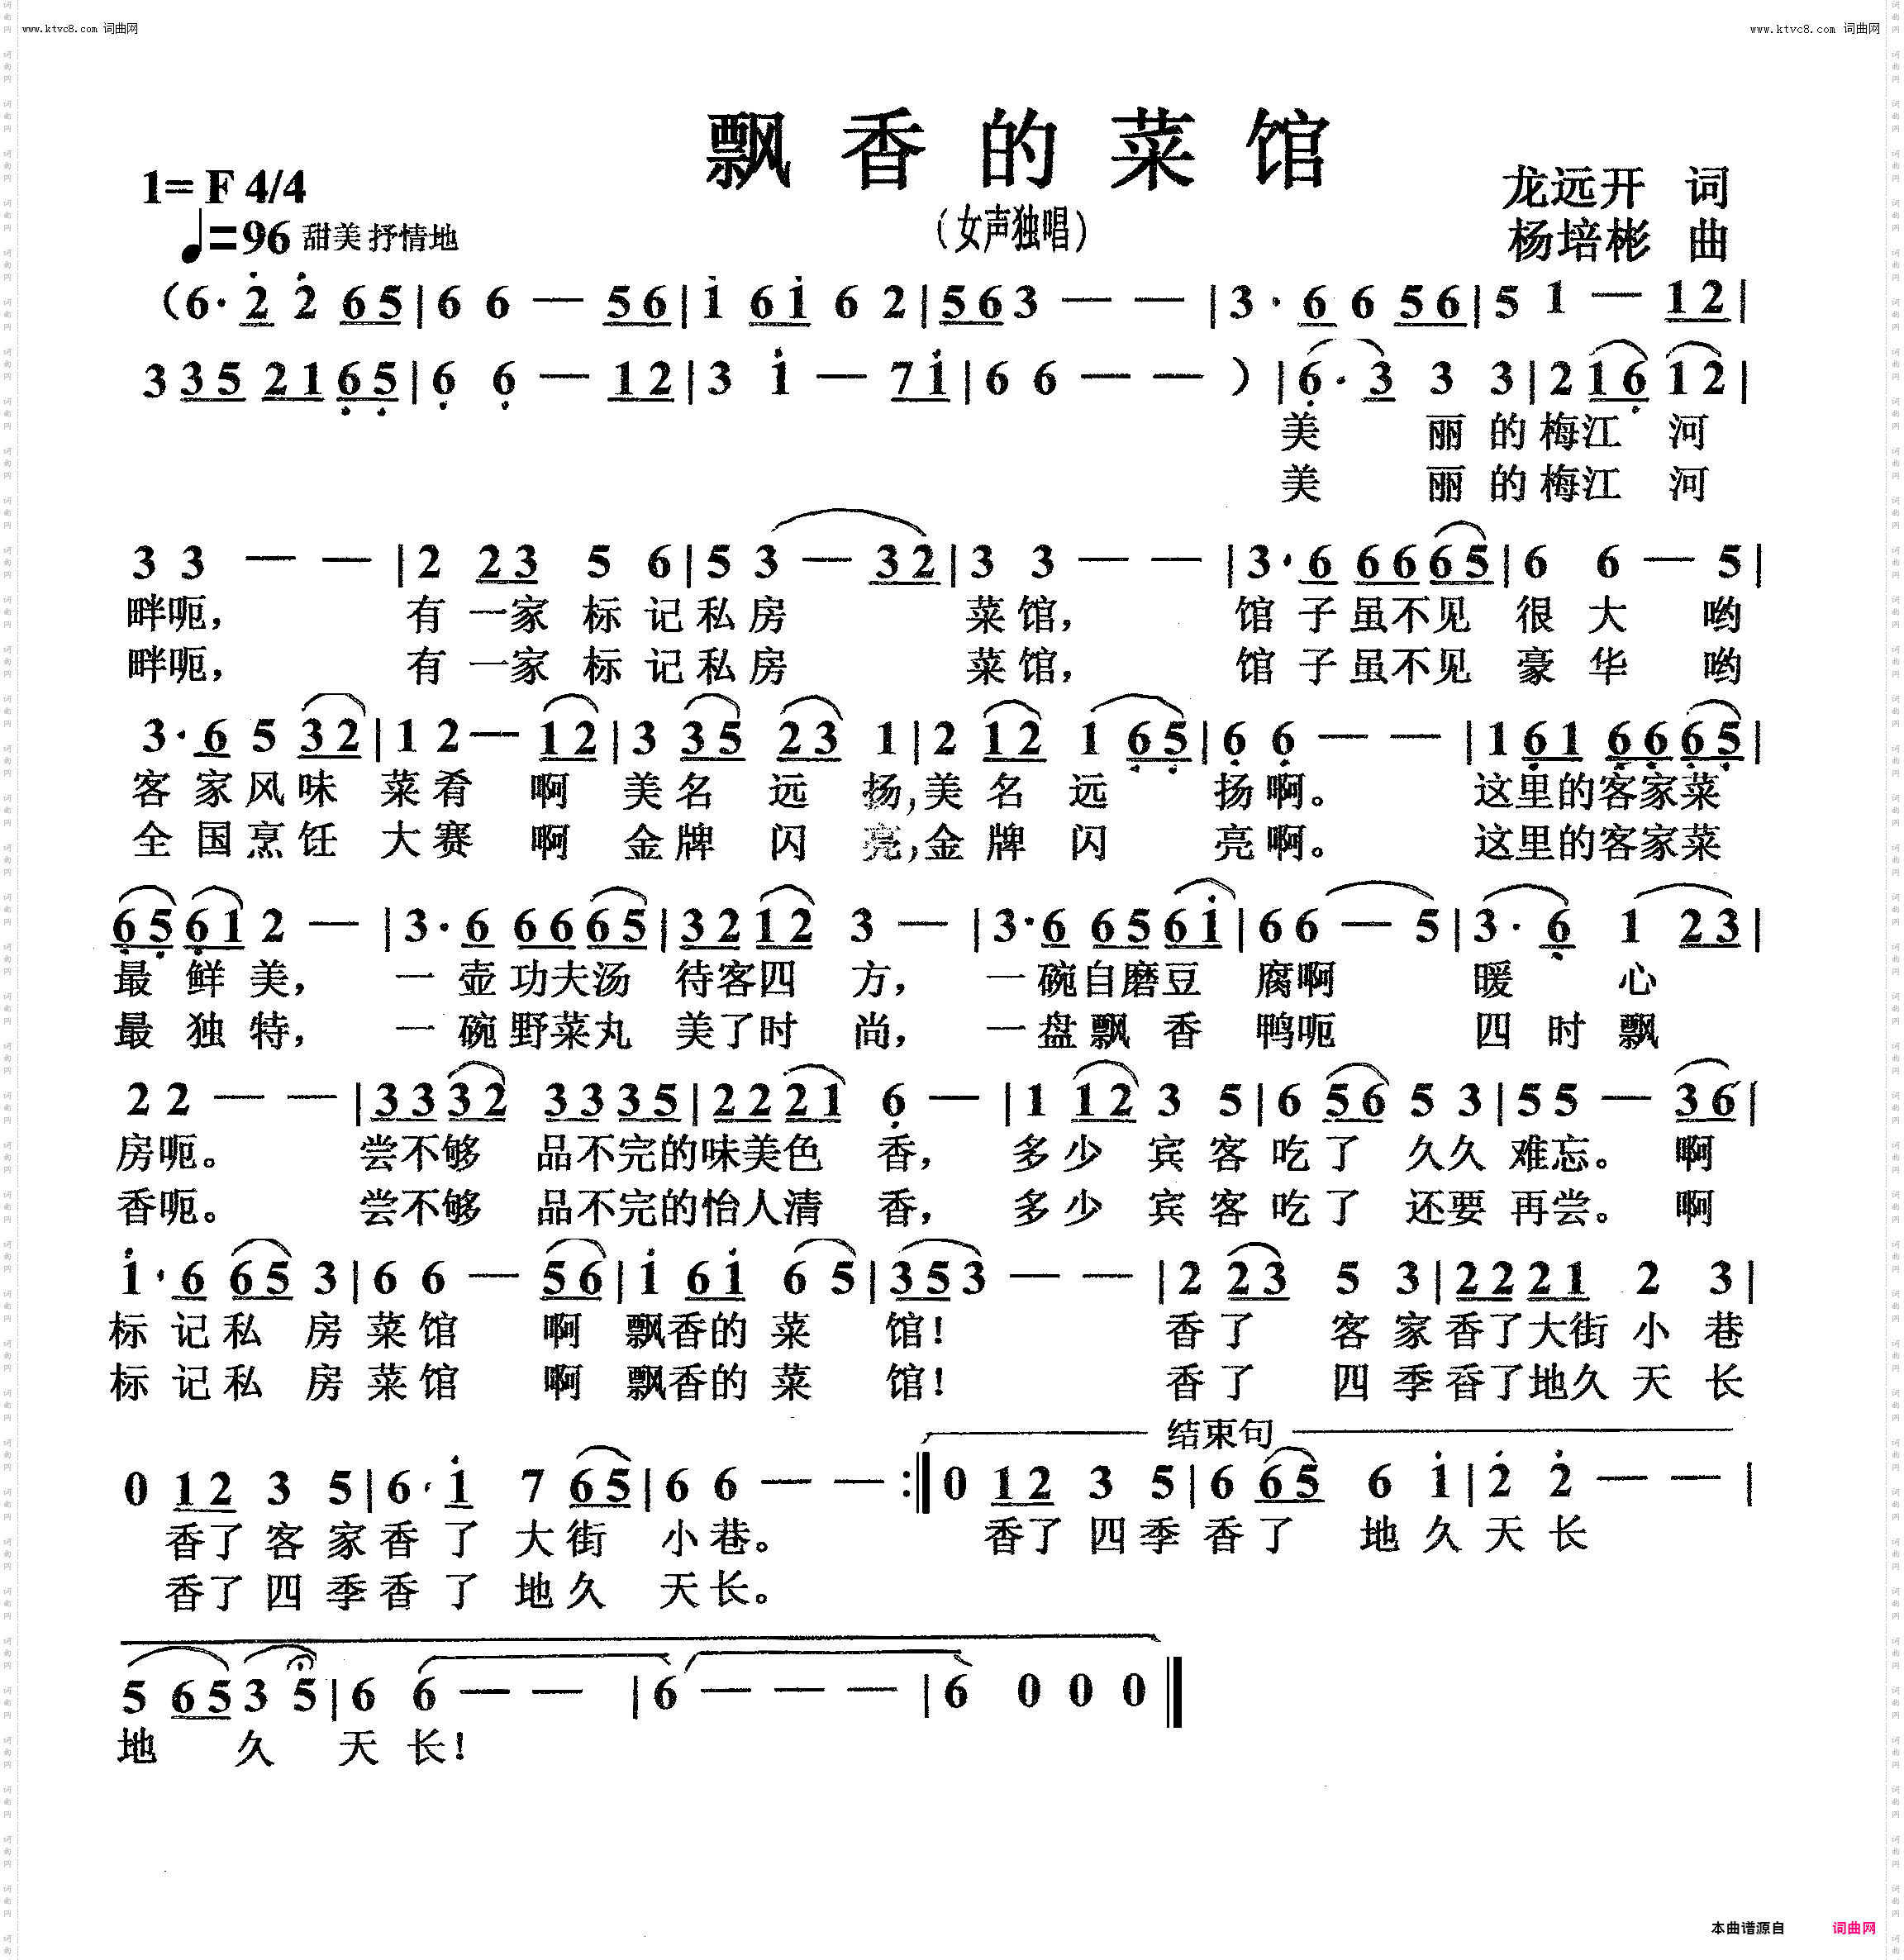 www.ktvc8.com 词曲网
www.ktvc8.com 词曲网
飘香的菜馆
1= F 4/4
龙远开 词
♩=96 甜美 抒情地
（女声独唱）
杨培彬 曲
（6· 2̇ 2̇ 6 5 | 6 6 — 5 6 | 1̇ 6 1̇ 6 2 | 5 6 3 — — | 3 · 6 6 5 6 | 5 1 — 1 2 |
3 3 5 2 1 6̣ 5̣ | 6̣ 6̣ — 1 2 | 3 1̇ — 7 1̇ | 6 6 — — ） | 6̣ · 3 3 3 | 2 1 6̣ 1 2 |
美 丽 的 梅江 河
美 丽 的 梅江 河
3 3 — — | 2 2 3 5 6 | 5 3 — 3 2 | 3 3 — — | 3 · 6 6 6 6 5 | 6 6 — 5 |
畔呃， 有 一家 标 记 私 房 菜 馆， 馆 子 虽不见 很 大 哟
畔呃， 有 一家 标 记 私 房 菜 馆， 馆 子 虽不见 豪 华 哟
3 · 6 5 3 2 | 1 2 — 1 2 | 3 3 5 2 3 1 | 2 1 2 1 6̣ 5̣ | 6̣ 6̣ — — | 1 6̣ 1 6̣ 6̣ 6̣ 5̣ |
客 家 风 味 菜 肴 啊 美 名 远 扬，美 名 远 扬 啊。 这里的客家菜
全 国 烹 饪 大 赛 啊 金 牌 闪 亮，金 牌 闪 亮 啊。 这里的客家菜
6̣ 5̣ 6̣ 1 2 — | 3 · 6 6 6 6 5 | 3 2 1 2 3 — | 3 · 6 6 5 6 1̇ | 6 6 — 5 | 3 · 6̣ 1 2 3 |
最 鲜 美， 一 壶 功夫汤 待客四 方， 一 碗自磨豆 腐啊 暖 心
最 独 特， 一 碗 野菜丸 美了时 尚， 一 盘飘 香 鸭呃 四 时 飘
2 2 — — | 3 3 3 2 3 3 3 5 | 2 2 2 1 6̣ — | 1 1 2 3 5 | 6 5 6 5 3 | 5 5 — 3 6 |
房呃。 尝不够 品不完的味美色 香， 多 少 宾 客 吃 了 久久 难忘。 啊
香呃。 尝不够 品不完的怡人清 香， 多 少 宾 客 吃 了 还要 再尝。 啊
1̇ · 6 6 5 3 | 6 6 — 5 6 | 1̇ 6 1̇ 6 5 | 3 5 3 — — | 2 2 3 5 3 | 2 2 2 1 2 3 |
标 记 私 房 菜 馆 啊 飘香的 菜 馆！ 香 了 客 家 香了大街 小 巷
标 记 私 房 菜 馆 啊 飘香的 菜 馆！ 香 了 四 季 香了地久 天 长
结束句
0 1 2 3 5 | 6 · 1̇ 7 6 5 | 6 6 — — :‖ 0 1 2 3 5 | 6 6 5 6 1̇ | 2̇ 2̇ — — |
香了 客 家 香 了 大 街 小 巷。 香了 四 季 香 了 地 久 天 长
香了 四 季 香 了 地 久 天 长。
5 6 5 3 5 | 6 6 — — | 6 — — — | 6 0 0 0 ‖
地 久 天 长！
本曲谱源自 词曲网